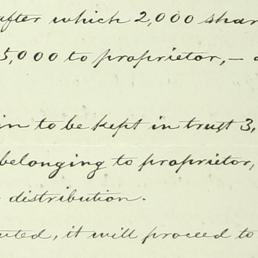 after which 2,000 shar
5,000 to proprietor, –
in to be kept in trust 3,
belonging to proprietor,
distribution.
uted, it will proceed to